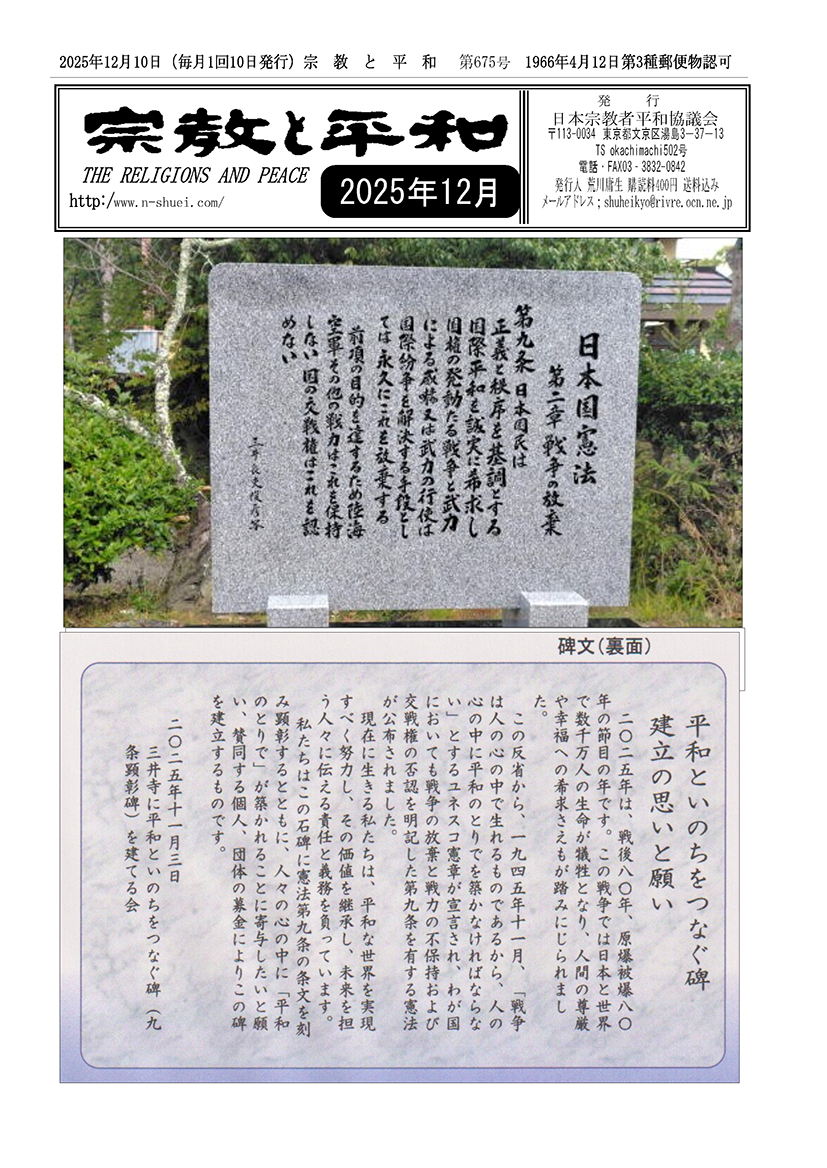 2025年12月10日（毎月1回10日発行）宗 教 と 平 和 第675号 1966年4月12日第3種郵便物認可
宗教と平和
THE RELIGIONS AND PEACE
http:/www.n-shuei.com/
2025年12月
発 行
日本宗教者平和協議会
〒113-0034 東京都文京区湯島3－37－13
TS okachimachi502号
電話・FAX03‐3832-0842
発行人 荒川庸生 購読料400円 送料込み
メールアドレス；shuheikyo@rivre.ocn.ne.jp
日本国憲法
第二章 戦争の放棄
第九条 日本国民は
正義と秩序を基調とする
国際平和を誠実に希求し
国権の発動たる戦争と武力
による威嚇又は武力の行使は
国際紛争を解決する手段とし
ては 永久にこれを放棄する
前項の目的を達するため陸海
空軍その他の戦力はこれを保持
しない 国の交戦権はこれを認
めない
碑文（裏面）
平和といのちをつなぐ碑
建立の思いと願い
二〇二五年は、戦後八〇年、原爆被爆八〇
年の節目の年です。この戦争では日本と世界
で数千万人の生命が犠牲となり、人間の尊厳
や幸福への希求さえもが踏みにじられまし
た。
この反省から、一九四五年十一月、「戦争
は人の心の中で生れるものであるから、人の
心の中に平和のとりでを築かなければならな
い」とするユネスコ憲章が宣言され、わが国
においても戦争の放棄と戦力の不保持および
交戦権の否認を明記した第九条を有する憲法
が公布されました。
現在に生きる私たちは、平和な世界を実現
すべく努力し、その価値を継承し、未来を担
う人々に伝える責任と義務を負っています。
私たちはこの石碑に憲法第九条の条文を刻
み顕彰するとともに、人々の心の中に「平和
のとりで」が築かれることに寄与したいと願
い、賛同する個人、団体の募金によりこの碑
を建立するものです。
二〇二五年十一月三日
三井寺に平和といのちをつなぐ碑（九
条顕彰碑）を建てる会